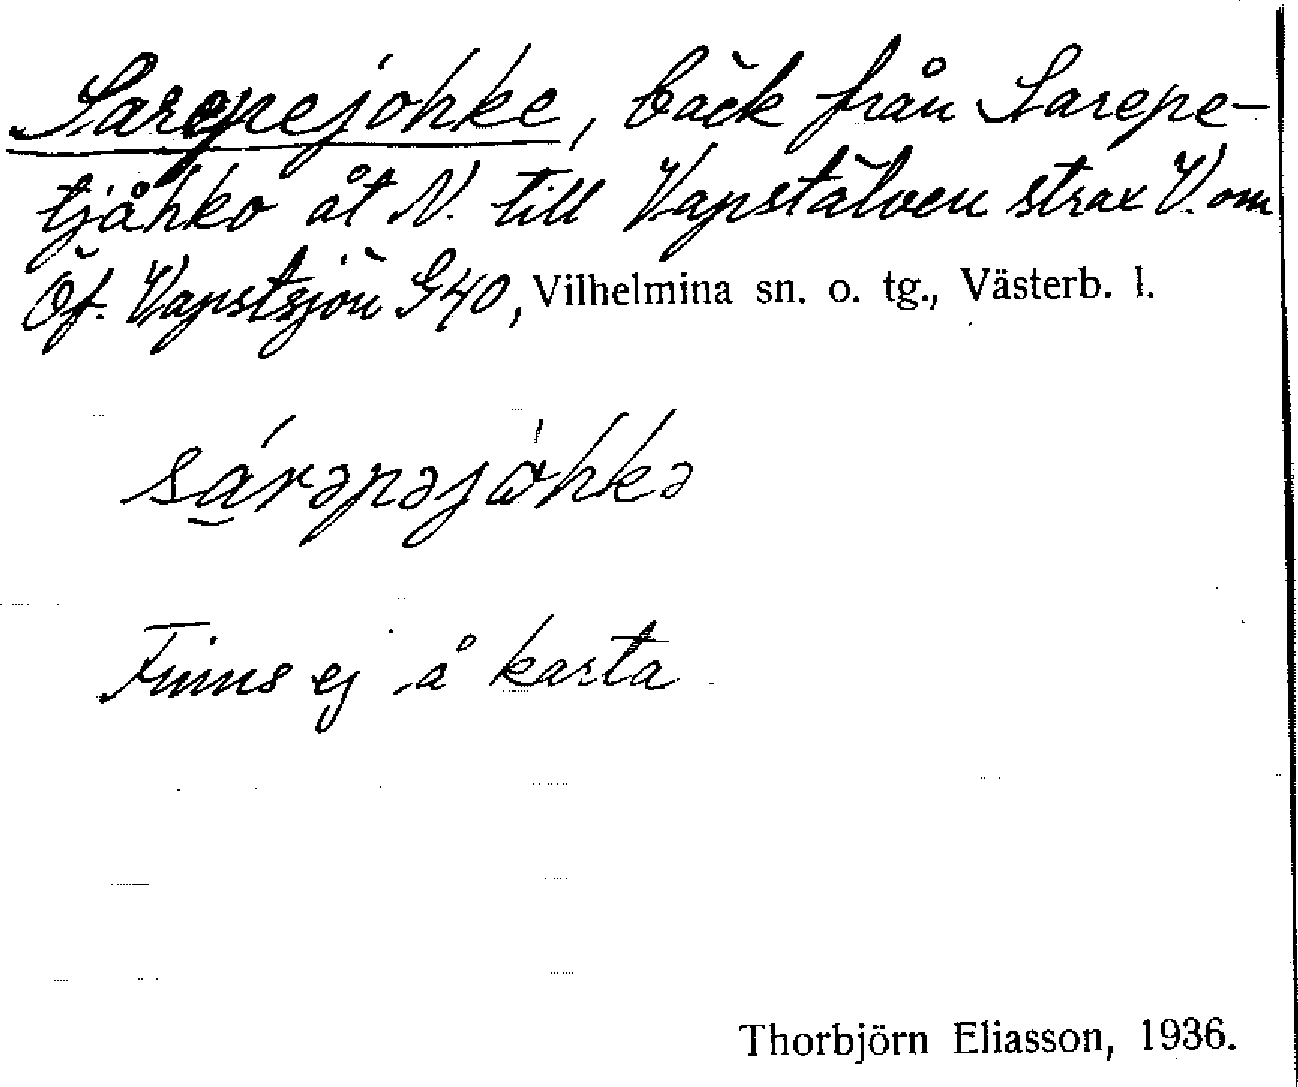 Sarepejohke, bäck från Sarepe-
tjåhko åt N. till Vapstälven strax V. om
Öf. Vapstsjön G40, Vilhelmina sn. o. tg., Västerb. l.
sá̮rəpəjòhkə
Finns ej å karta
Thorbjörn Eliasson, 1936.